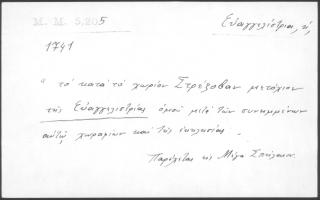 M. M. 5,205
Εὐαγγελίστρια, ἡ,
1741
" τὸ κατὰ τὸ χωρίον Στρέζοβαν μετόχιον
τῆς Εὐαγγελιστρίας ὁμοῦ μετὰ τῶν συνημμένων
αὐτῷ χωραφίων καὶ τῆς ἐκκλησίας.
εἰς Μέγα Σπήλαιον.